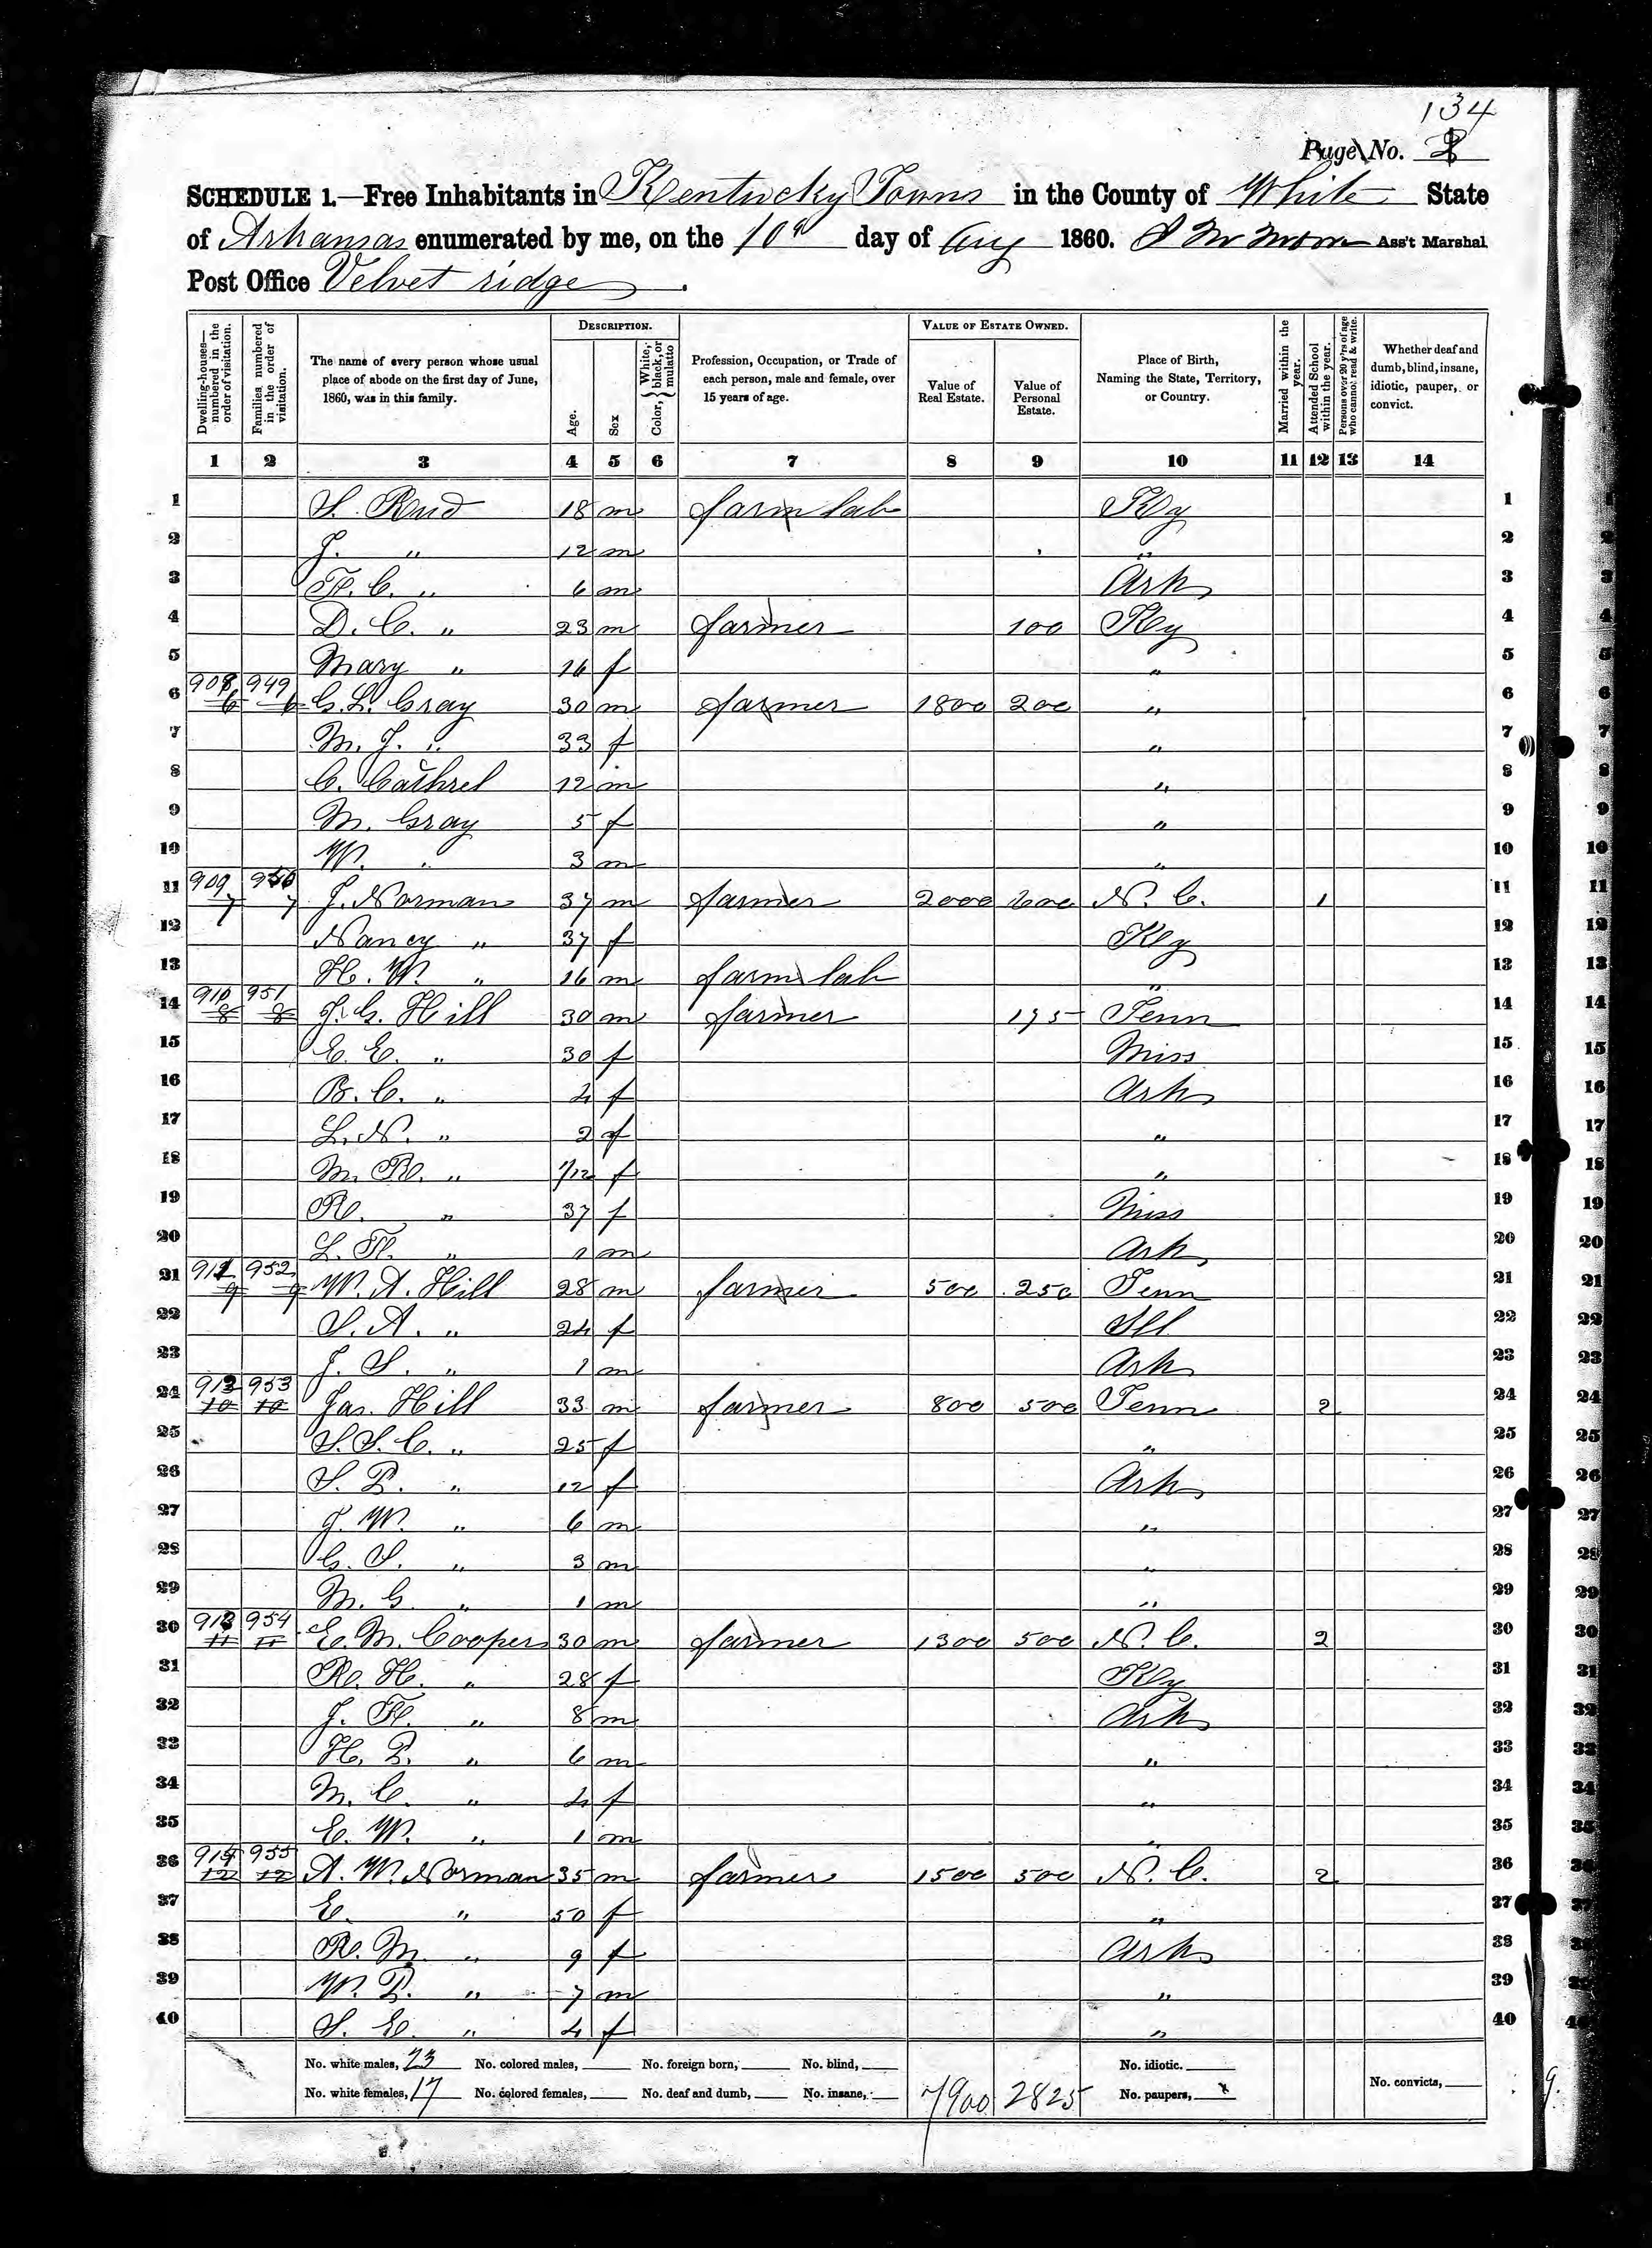 134
Page No. 2
SCHEDULE 1.—Free Inhabitants in Kentucky Towns in the County of White State
of Arkansas enumerated by me, on the 10 day of Aug 1860. Ass't Marshal
Post Office Velvet ridge.
Dwelling-houses—numbered in the order of visitation.
Families numbered in the order of visitation.
The name of every person whose usual place of abode on the first day of June, 1860, was in this family.
DESCRIPTION.
Age.
Sex
Color, { White, black, or mulatto
Profession, Occupation, or Trade of each person, male and female, over 15 years of age.
VALUE OF ESTATE OWNED.
Value of Real Estate.
Value of Personal Estate.
Place of Birth, Naming the State, Territory, or Country.
Married within the year.
Attended School within the year.
Persons over 20 y'rs of age who cannot read & write.
Whether deaf and dumb, blind, insane, idiotic, pauper, or convict.
1 2 3 4 5 6 7 8 9 10 11 12 13 14
1 S. 18 m farm lab Ky 1
2 J. " 12 m " 2
3 " 6 m Ark 3
4 D. C. " 23 m farmer 100 Ky 4
5 Mary " 16 f " 5
6 908 949 G. L. Gray 30 m farmer 1800 200 " 6
7 M. J. " 33 f " 7
8 C. Cathrel 12 m " 8
9 M. Gray 5 f " 9
10 W. " 3 m " 10
11 909 950 7 7 J. Norman 37 m farmer 2000 600 N. C. 1 11
12 Nancy " 37 f Ky 12
13 H. W. " 16 m farm lab " 13
14 910 951 8 8 J. G. Hill 30 m farmer 175 Tenn 14
15 E. E. " 30 f Miss 15
16 B. C. " 4 f Ark 16
17 L. N. " 2 f " 17
18 M. R. " 1/12 f " 18
19 R. " 37 f Miss 19
20 L. F. " 1 m Ark 20
21 911 952 9 9 W. A. Hill 28 m farmer 500 250 Tenn 21
22 S. A. " 24 f Ill 22
23 J. S. " 1 m Ark 23
24 912 953 10 10 Jas. Hill 33 m farmer 800 500 Tenn 2 24
25 S. S. C. " 25 f " 25
26 S. P. " 12 f Ark 26
27 J. W. " 6 m " 27
28 G. S. " 3 m " 28
29 M. G. " 1 m " 29
30 913 954 11 11 E. M. Cooper 30 m farmer 1300 500 N. C. 2 30
31 R. H. " 28 f Ky 31
32 J. F. " 8 m Ark 32
33 H. P. " 6 m " 33
34 M. C. " 4 f " 34
35 E. W. " 1 m " 35
36 914 955 12 12 A. W. Norman 35 m farmer 1500 500 N. C. 2 36
37 E. " 50 f " 37
38 R. M. " 9 f Ark 38
39 W. P. " 7 m " 39
40 S. E. " 4 f " 40
No. white males, 23 No. colored males, No. foreign born, No. blind, No. idiotic.
No. white females, 17 No. colored females, No. deaf and dumb, No. insane, 7900 2825 No. paupers, No. convicts,